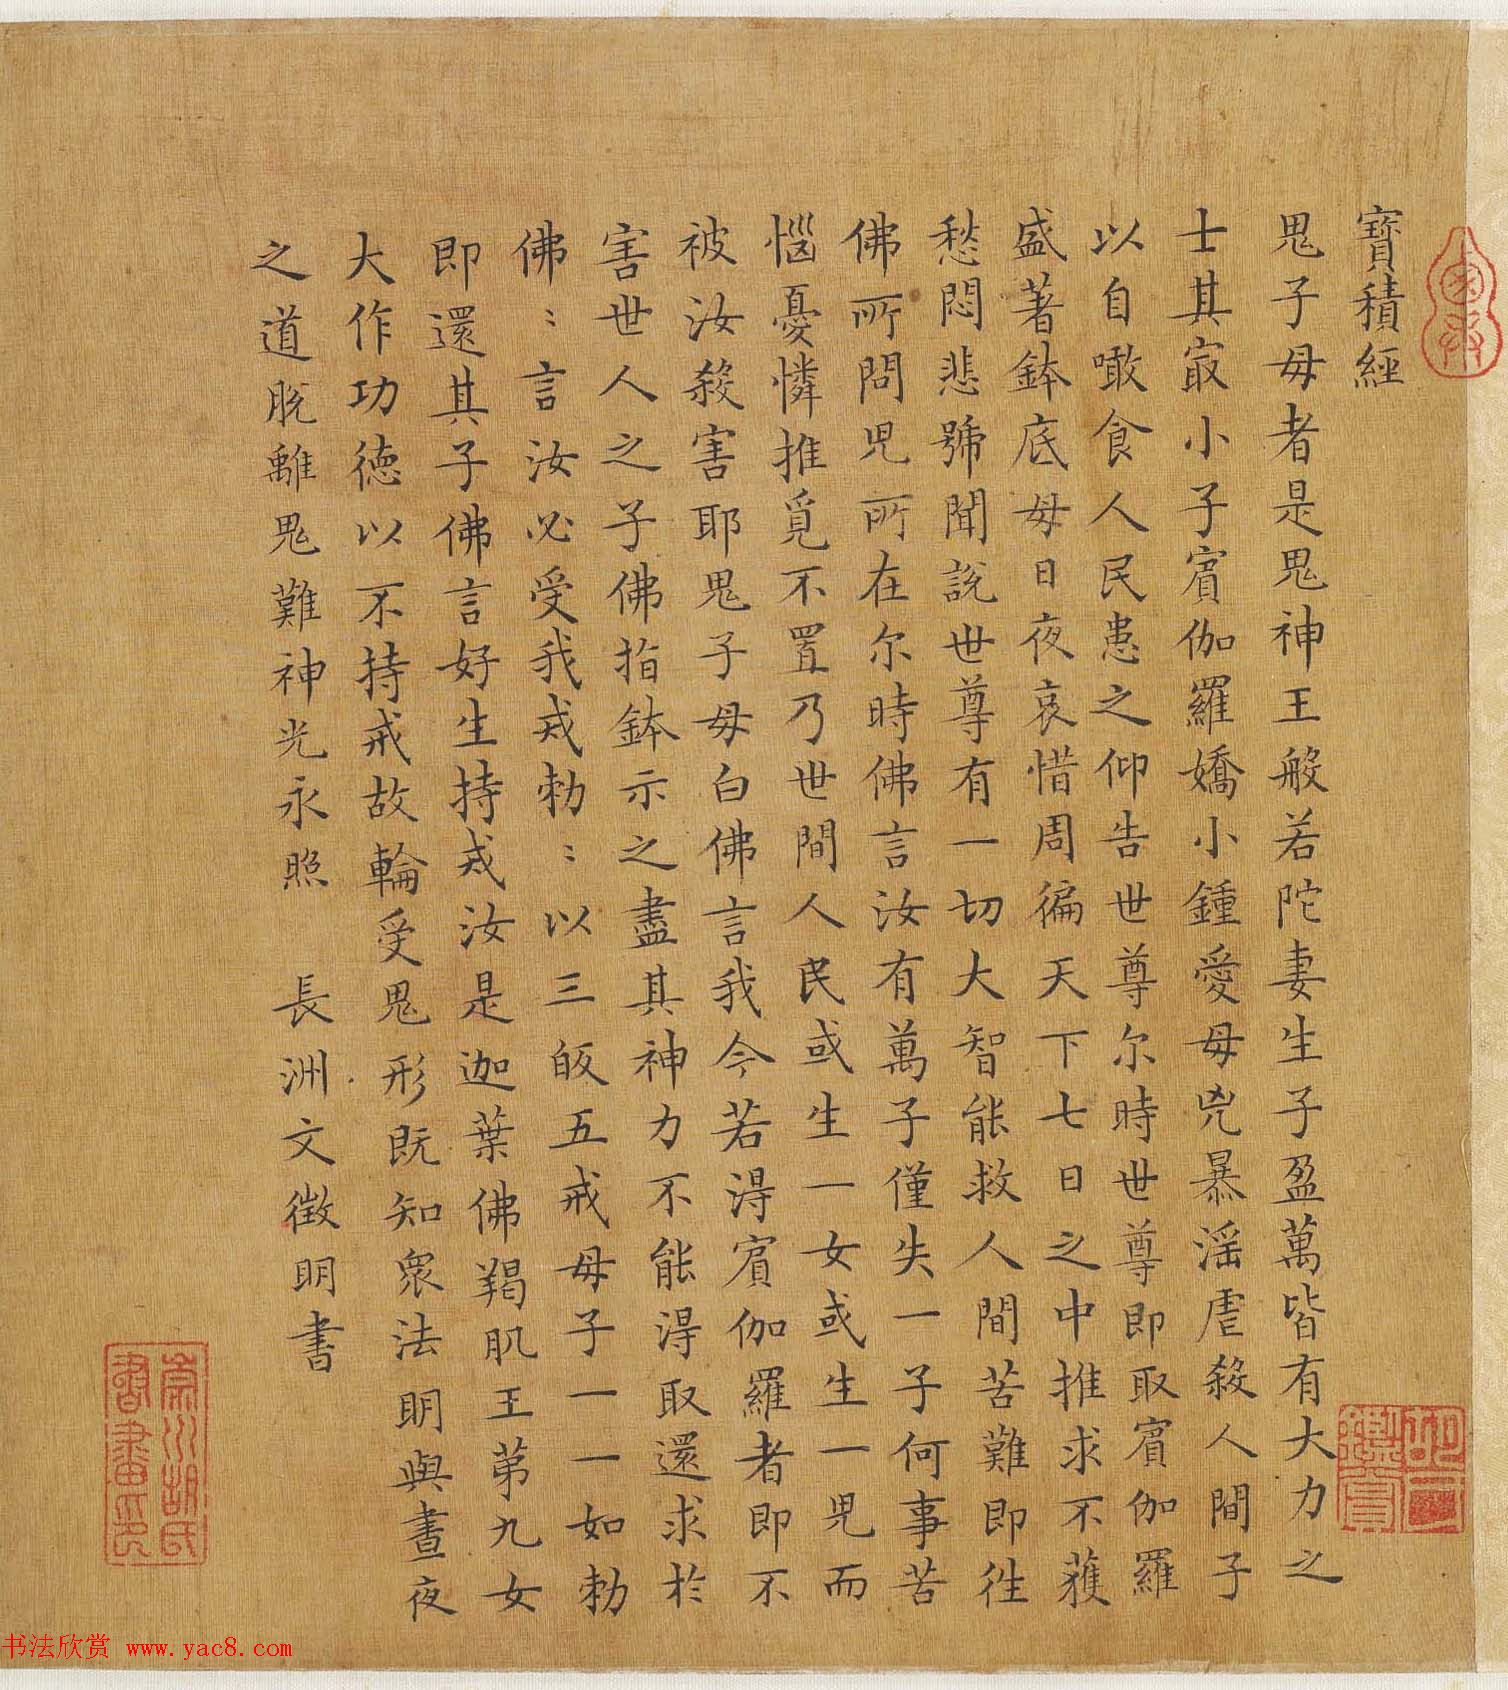 寶積經
鬼子母者是鬼神王般若陀妻生子盈萬皆有大力之
士其冣小子賓伽羅嬌小鍾愛母兇暴淫虐殺人間子
以自噉食人民患之仰告世尊尔時世尊即取賓伽羅
盛著鉢底母日夜哀惜周徧天下七日之中推求不獲
愁悶悲號聞說世尊有一切大智能救人間苦難即徃
佛所問児所在尔時佛言汝有萬子僅失一子何事苦
惱憂憐推覓不置乃世間人民或生一女或生一児而
被汝殺害耶鬼子母白佛言我今若淂賓伽羅者即不
害世人之子佛指鉢示之盡其神力不能淂取還求於
佛〻言汝必受我戒勑〻以三皈五戒母子一一如勑
即還其子佛言好生持戒汝是迦葉佛羯肌王第九女
大作功德以不持戒故輪受鬼形既知衆法明與晝夜
之道脫離鬼難神光永照 長洲文徵明書
書法欣賞 www.yac8.com